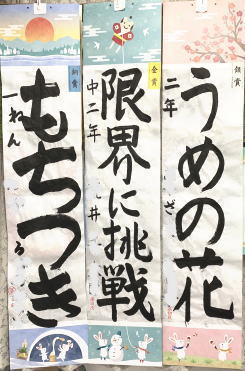 銀賞
うめの花
二年
ざ
金賞
限界に挑戦
中二年
井
銅賞
もちつき
一ねん
ろ